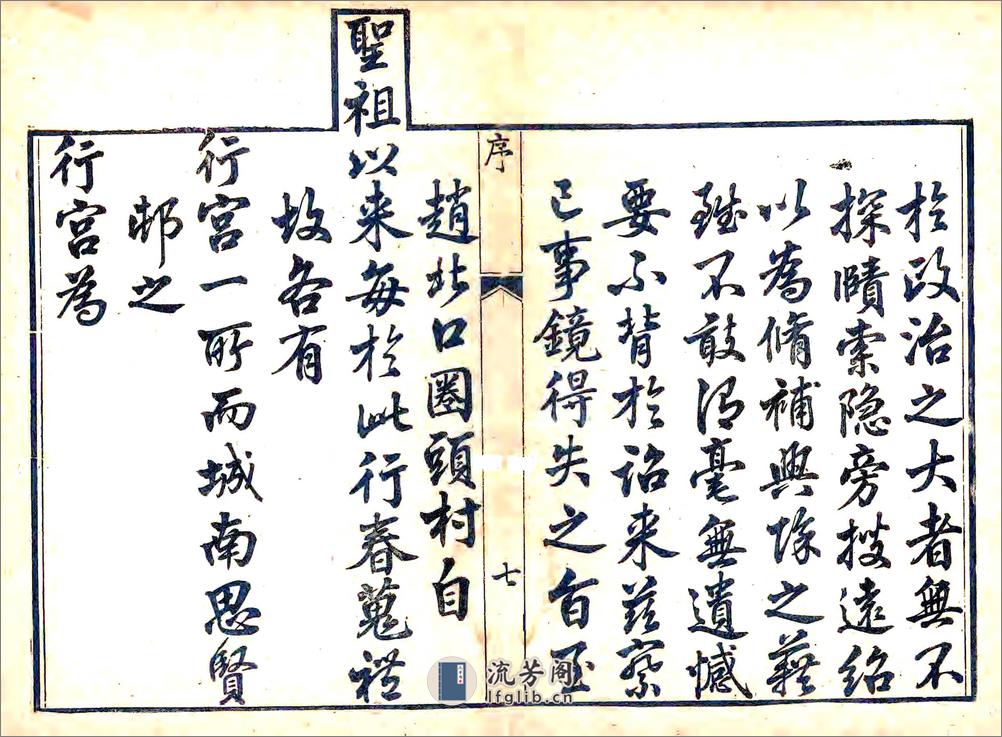 於政治之大者無不
探賾索隐旁搜遠紹
以為脩補興除之藉
雖不敢謂毫無遺憾
要不背於詔来茲察
已事鏡得失之旨至
序
七
趙北口圈頭村自
聖祖以来每於此行春蒐禮
故各有
行宮一所而城南思賢
邨之
行宮為
流芳阁
lfglib.cn